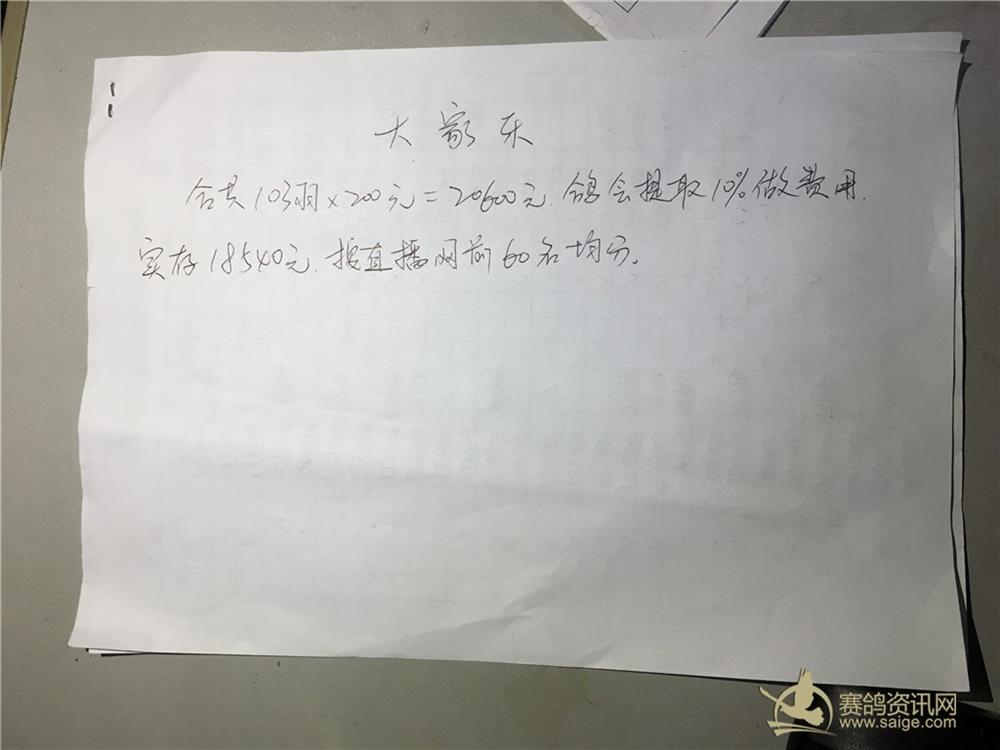 大家乐
合共103羽×200元=20600元.鸽会提取10%做费用.
实存18540元.按直播网前60名均分.
赛鸽资讯网
www.saige.com